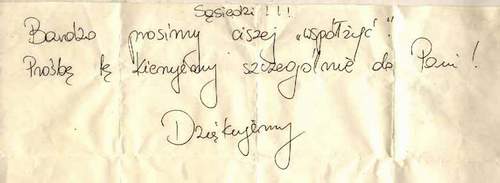 Sąsiedzi!!!
Bardzo prosimy ciszej „współżyć".
Prośbę tę kierujemy szczególnie do Pani!
Dziękujemy